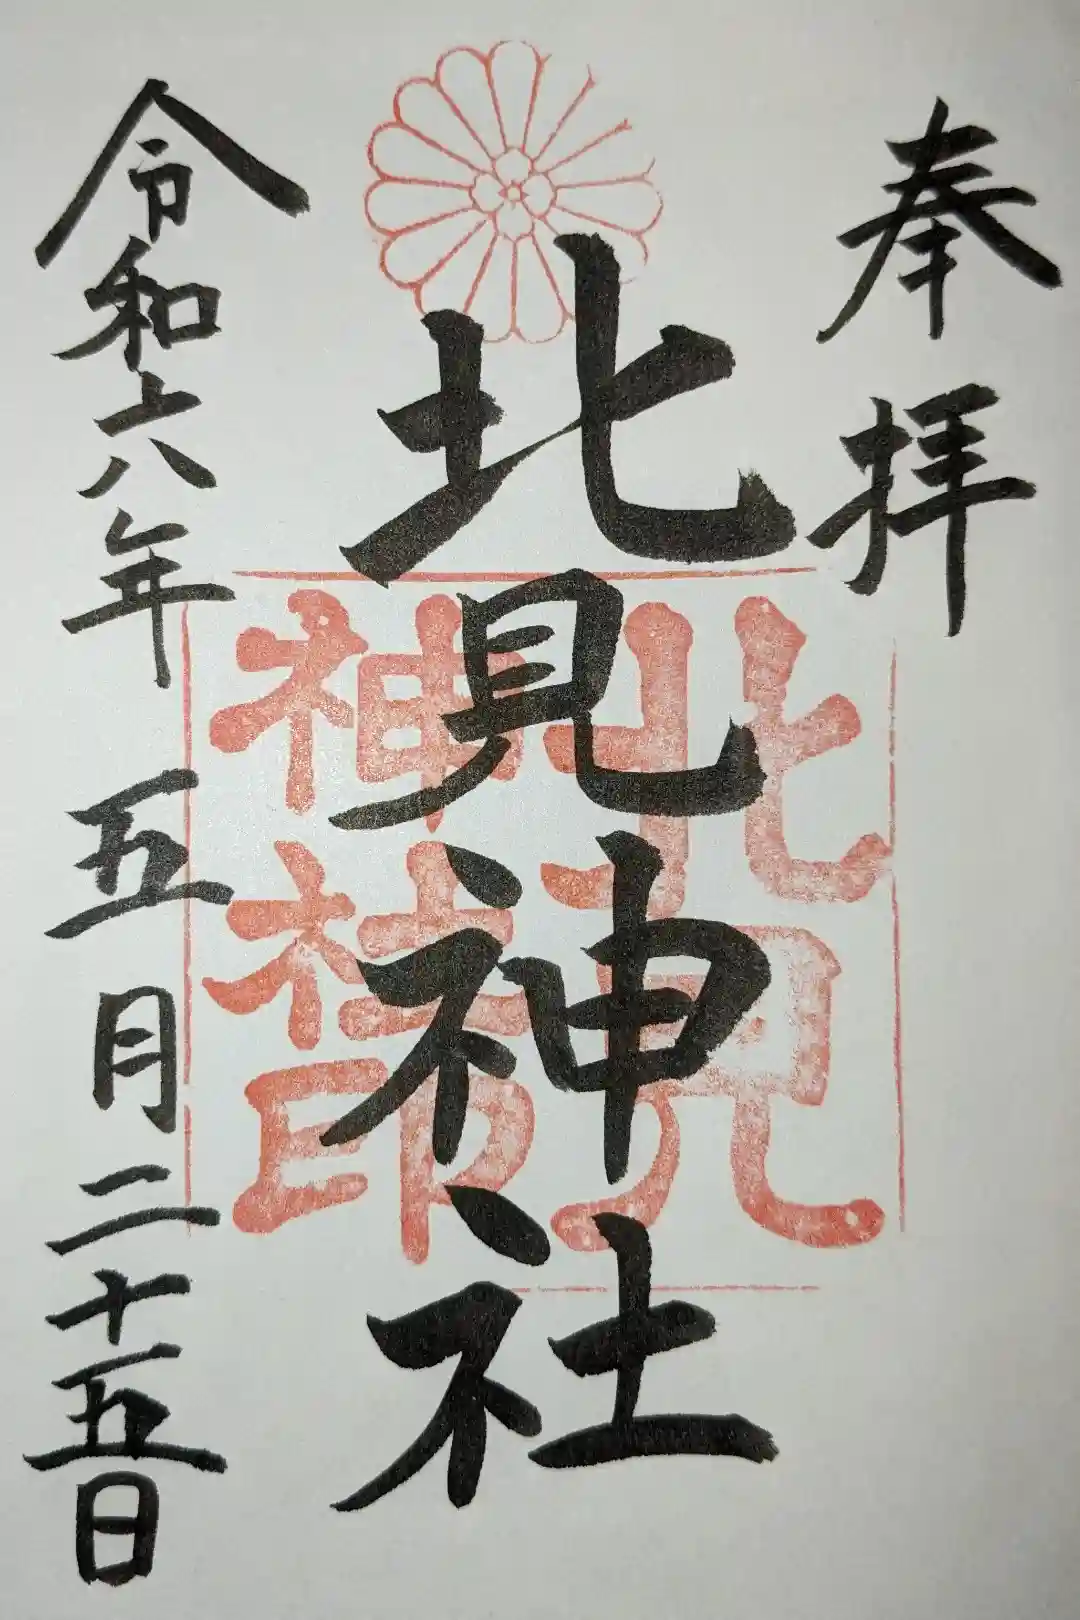 奉拝
北見神社
北見
神社印
令和六年五月二十五日